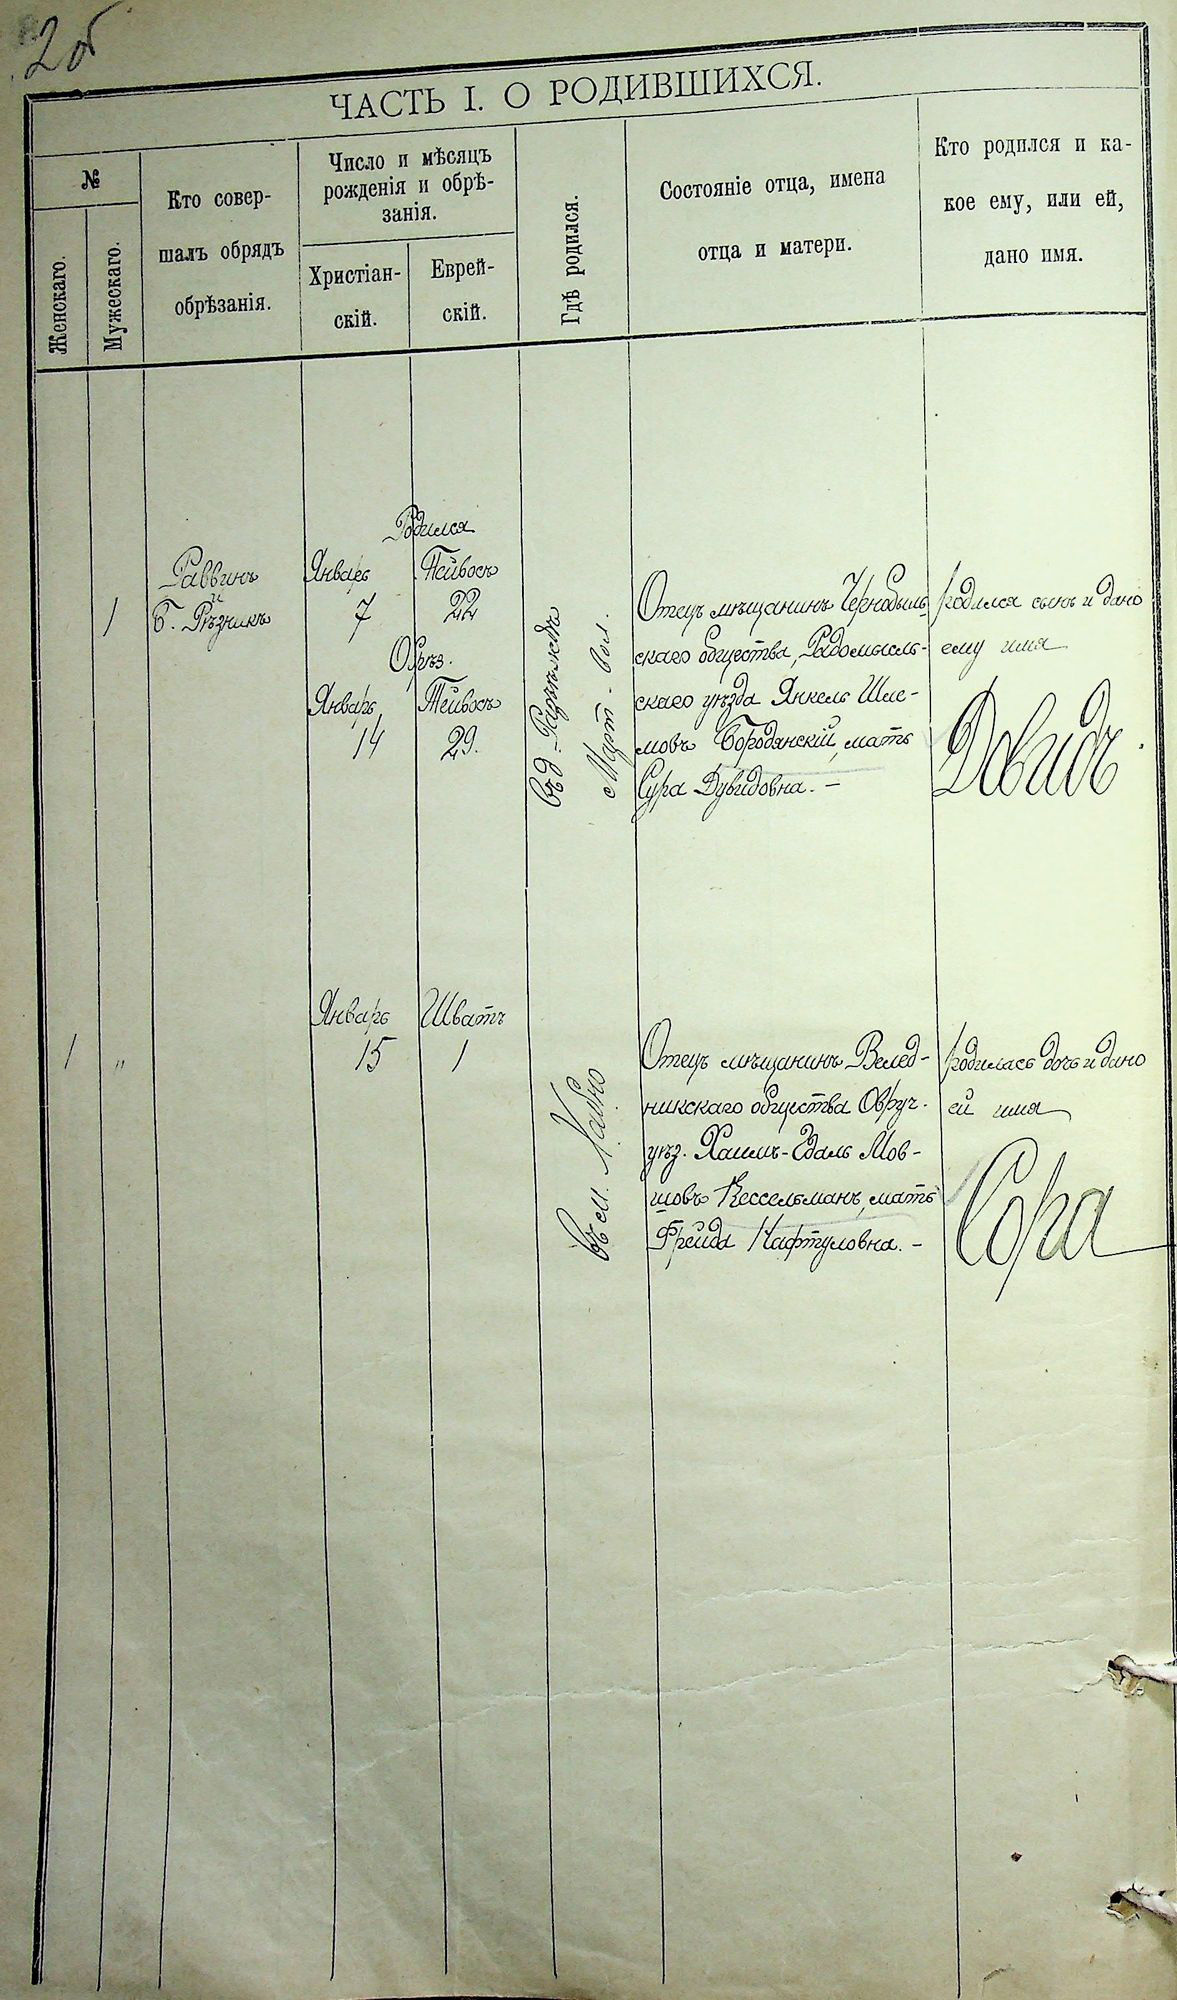 2об
ЧАСТЬ I. О РОДИВШИХСЯ.
№
Женскаго.
Мужескаго.
Кто совер-
шалъ обрядъ
обрѣзанія.
Число и мѣсяцъ
рожденія и обрѣ-
занія.
Христіан-
скій.
Еврей-
скій.
Гдѣ родился.
Состояніе отца, имена
отца и матери.
Кто родился и ка-
кое ему, или ей,
дано имя.
1
Раввинъ
и
Б. Рѣзникъ
Родился
Январь Тейвосъ
7 22
Обрѣз.
Январь Тейвосъ
14 29.
въ д.
Март. вол.
Отецъ мѣщанинъ Чернобыль-
скаго общества, Радомысль-
скаго уѣзда Янкель Шле-
мовъ Бородянскій, мать
Сура Дувидовна. –
родился сынъ и дано
ему имя
Довидъ.
1 "
Январь Шватъ
15 1
въ м. Хабно
Отецъ мѣщанинъ Велед-
никскаго общества Овруч.
уѣз. Хаимъ-Эдаль Мов-
шовъ Кессельманъ, мать
Фрейда Нафтуловна. –
родилась дочь и дано
ей имя
Сора